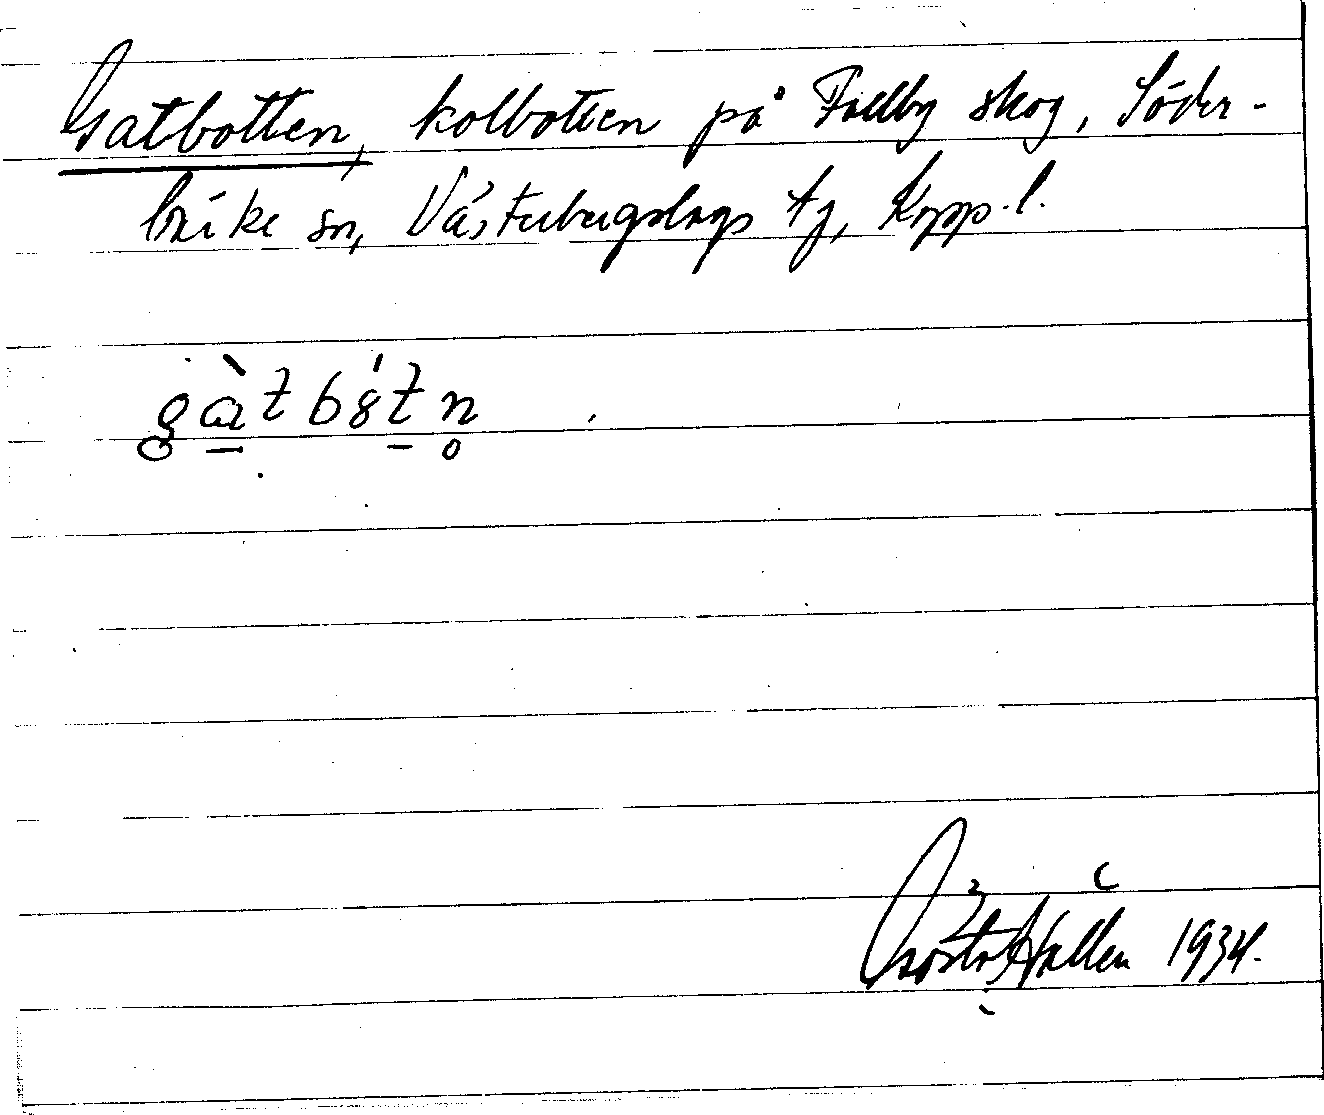 Gatbotten, kolbotten på Fallby skog, Söder-
bärke sn, Västerbergslags tg, Kopp. l.
gàtbótn
Gösta Hallén 1934.